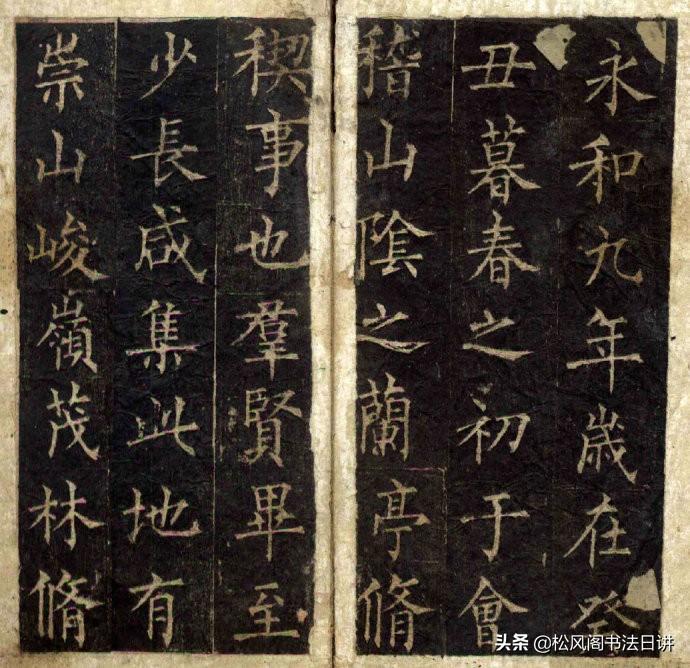 永和九年歲在癸
丑暮春之初于會
稽山陰之蘭亭脩
稧事也羣賢畢至
少長咸集此地有
崇山峻嶺茂林脩
头条 @松风阁书法日讲